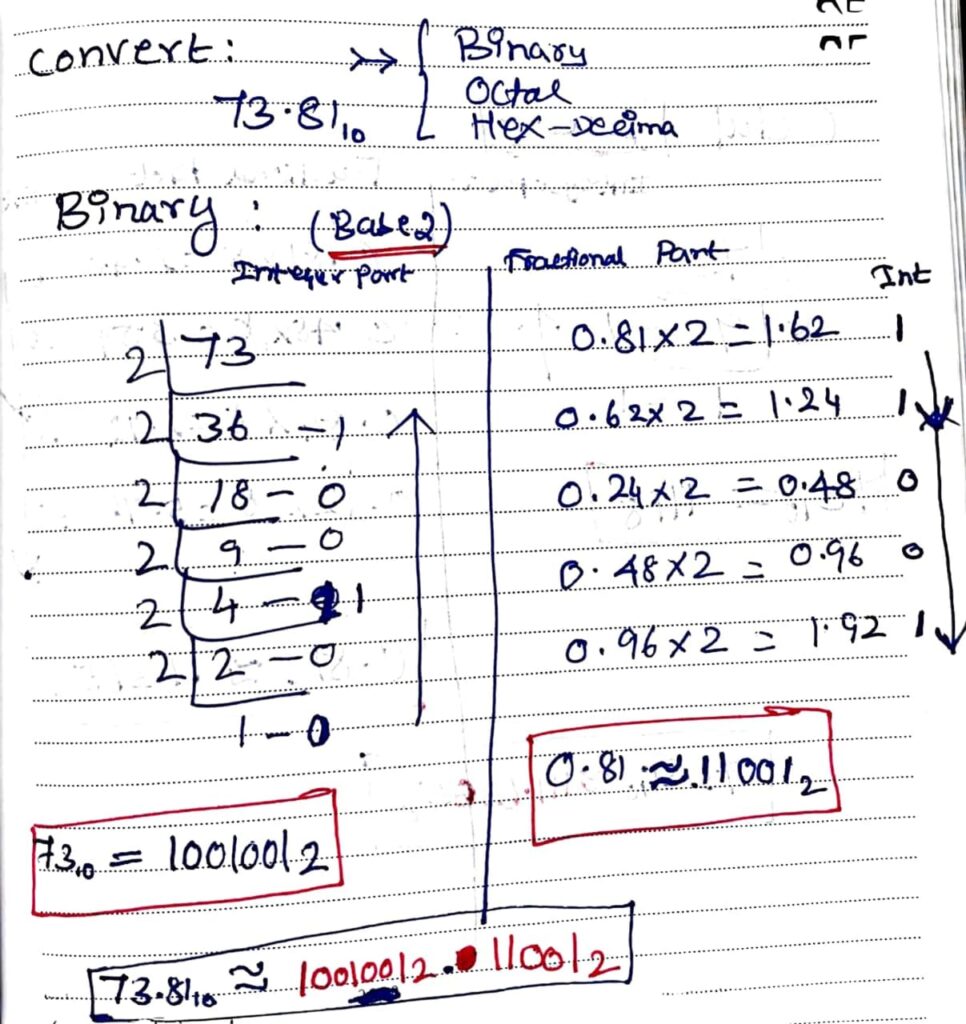 Convert: ↣ { Binary
Octal
73.81₁₀ Hex-Decima
Binary : (Base2)
Integer Part
2 | 73
2 | 36 - 1
2 | 18 - 0
2 | 9 - 0
2 | 4 - 1
2 | 2 - 0
1 - 0
73₁₀ = 1001001₂
Fractional Part
Int
0.81 × 2 = 1.62 1
0.62 × 2 = 1.24 1
0.24 × 2 = 0.48 0
0.48 × 2 = 0.96 0
0.96 × 2 = 1.92 1
0.81 ≈ .11001₂
73.81₁₀ ≈ 1001001₂.11001₂